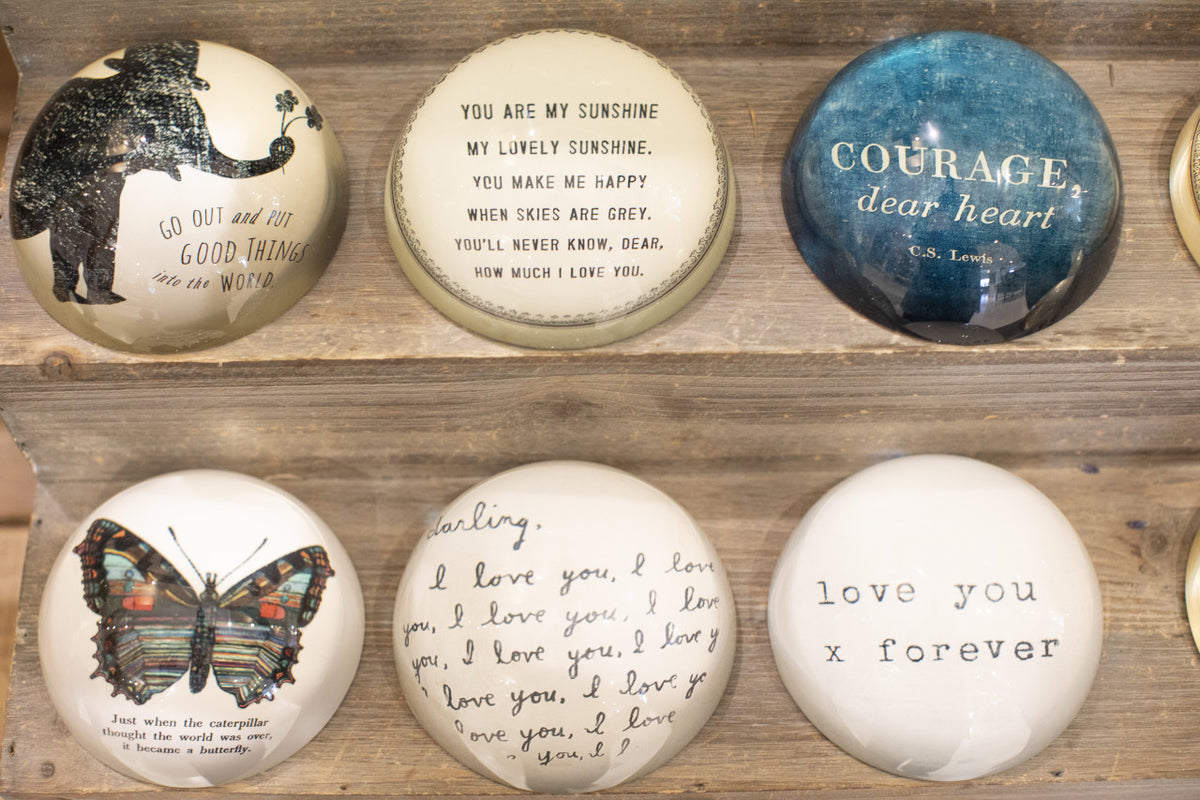 GO OUT and PUT
GOOD THINGS
into the WORLD
YOU ARE MY SUNSHINE
MY LOVELY SUNSHINE.
YOU MAKE ME HAPPY
WHEN SKIES ARE GREY.
YOU'LL NEVER KNOW, DEAR,
HOW MUCH I LOVE YOU.
COURAGE,
dear heart
C.S. Lewis
Just when the caterpillar
thought the world was over,
it became a butterfly.
darling,
I love you, I love
you, I love you, I love
you, I love you, I love y
love you, I love yo
love you, I love
you, I I
love you
x forever